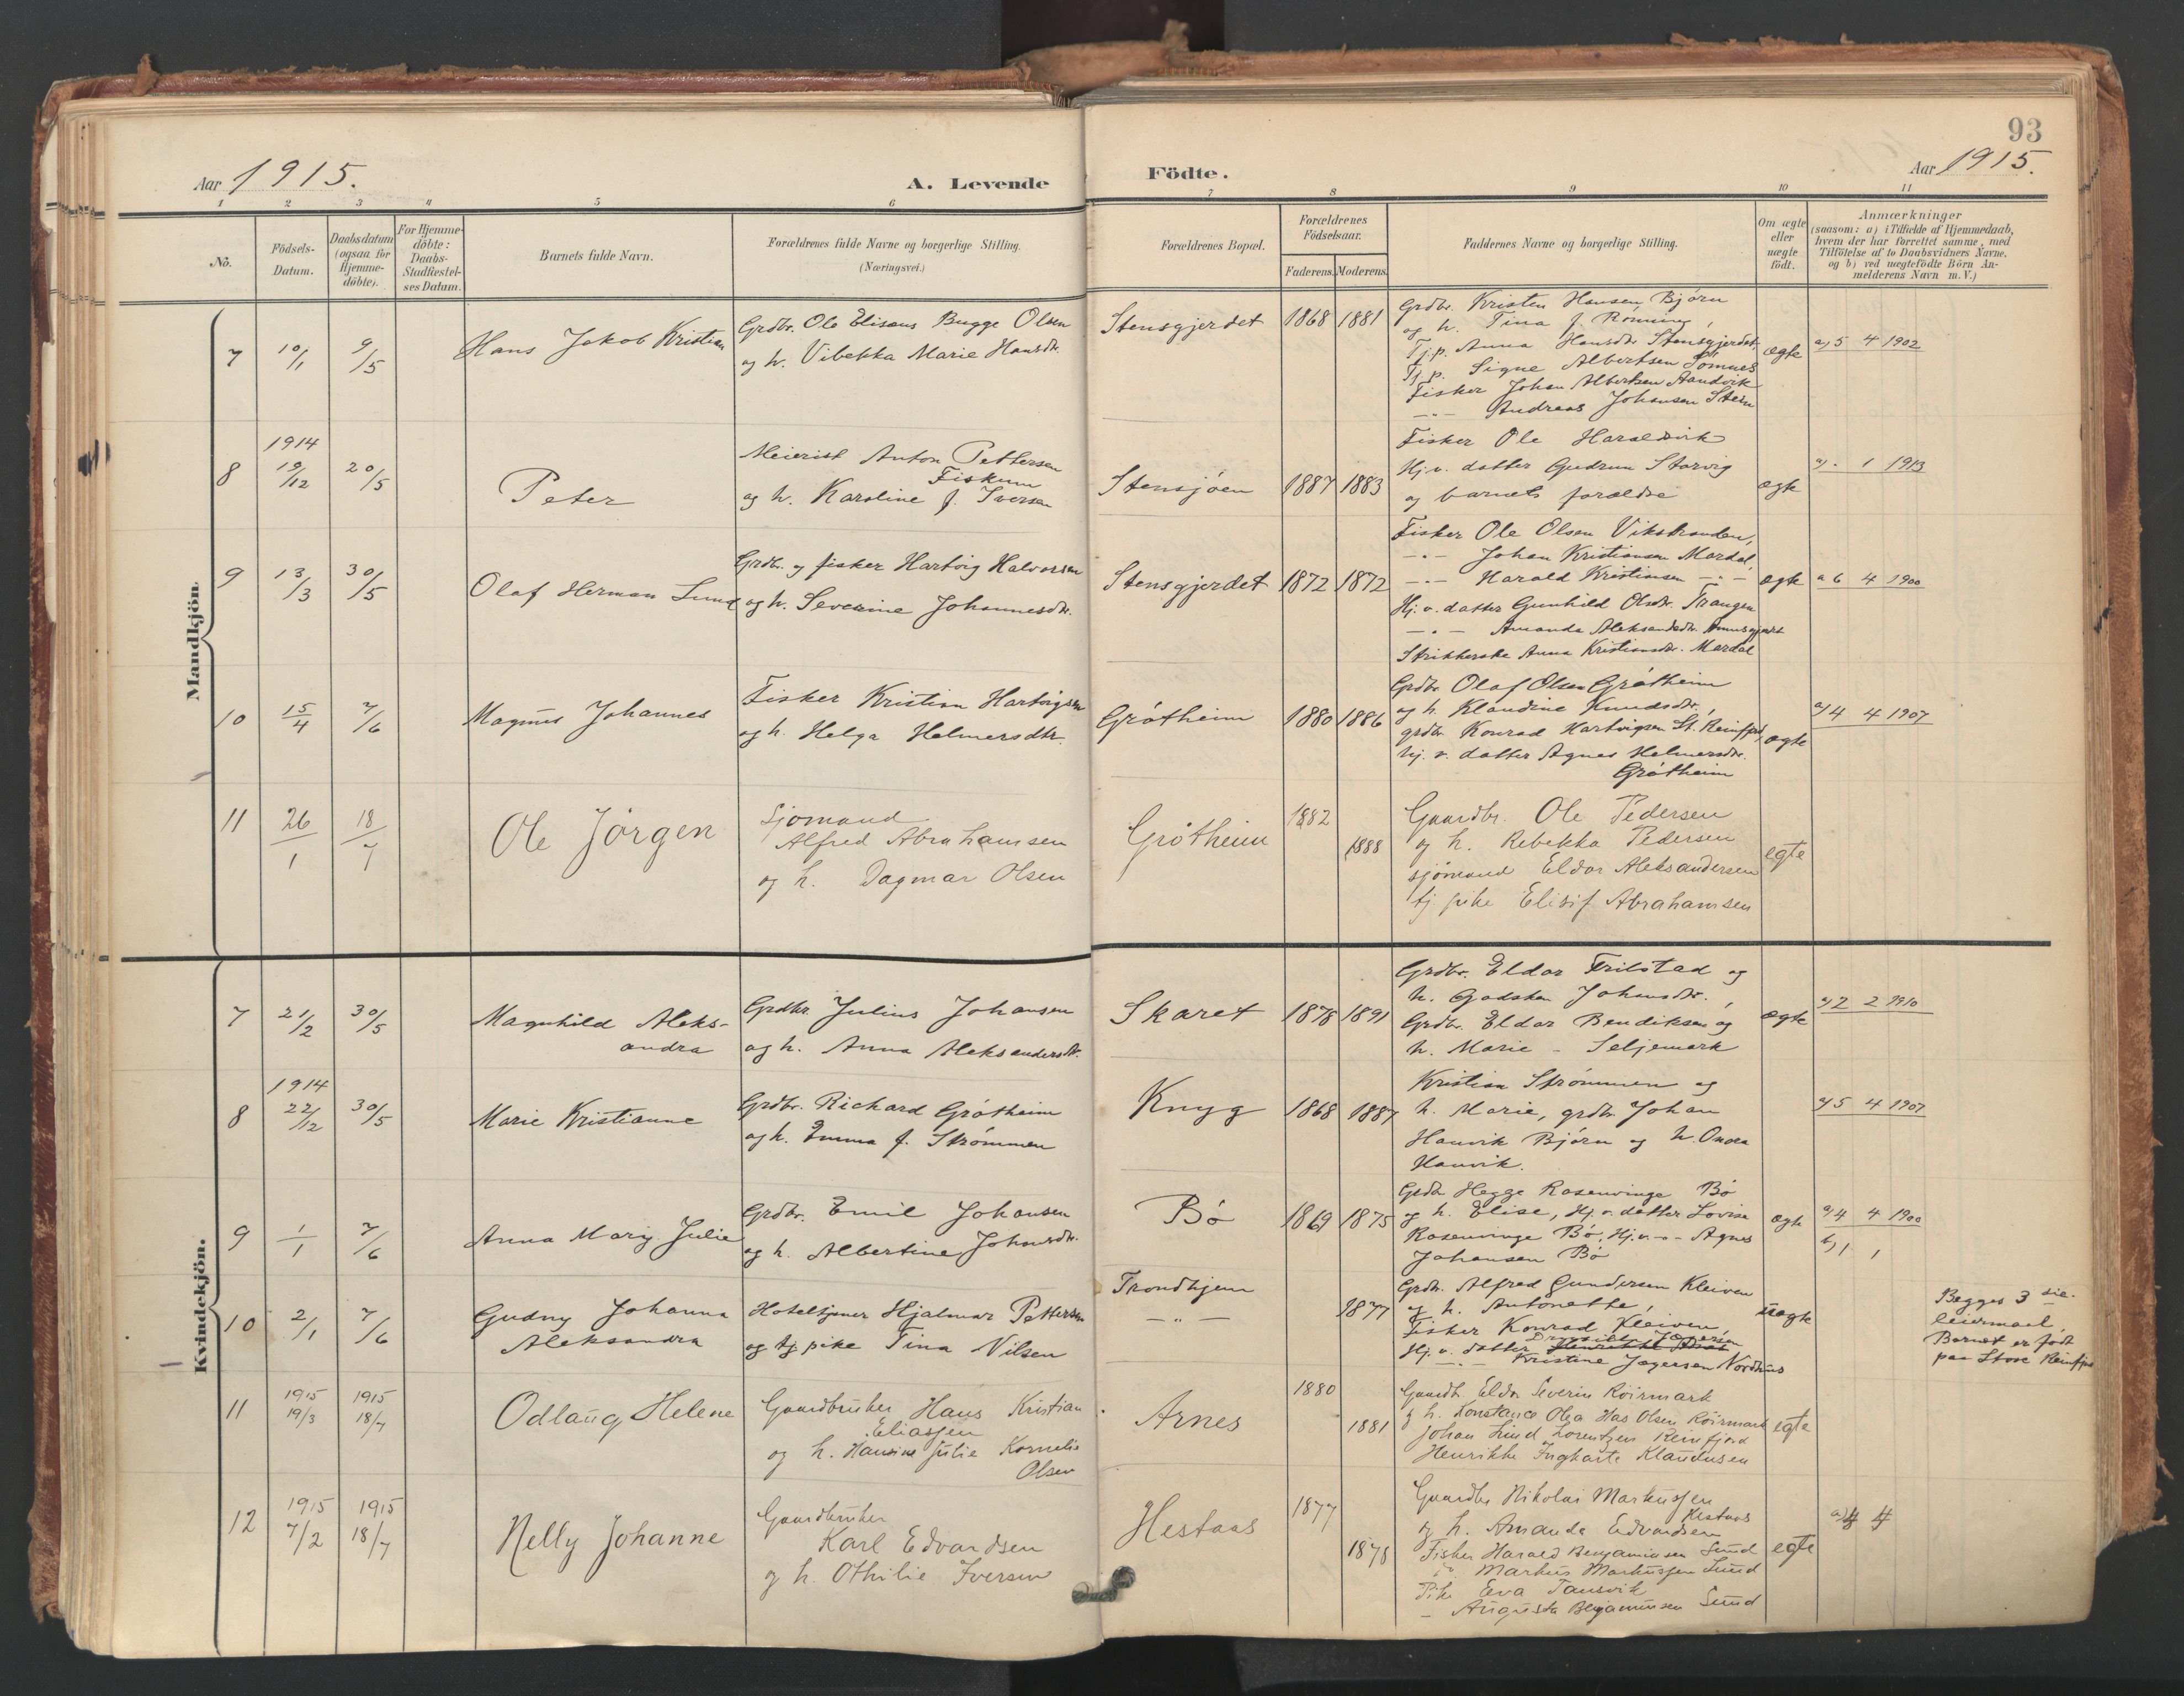 93
Aar 1915.
A. Levende
Födte.
Aar 1915.
1 2 3 4 5 6 7 8 9 10 11
No.
Födsels-
Datum.
Daabsdatum
(ogsaa for
Hjemme-
döbte).
For Hjemme-
döbte:
Daabs-
Stadfæstel-
ses Datum.
Barnets fulde Navn.
Forældrenes fulde Navne og borgerlige Stilling.
(Næringsvei.)
Forældrenes Bopæl.
Forældrenes
Födselsaar.
Faderens. Moderens.
Faddernes Navne og borgerlige Stilling.
Om ægte
eller
uægte
födt.
Anmærkninger
(saasom: a) i Tilfælde af Hjemmedaab,
hvem der har forrettet samme, med
Tilföielse af to Daabsvidners Navne.
og b) ved uægtefödte Börn An-
melderens Navn m. V.)
Mandkjön.
7 10/1 9/5
Hans Jakob Kristian
Grdbr. Ole Elisæus Bugge Olsen
og h. Vibekka Marie Hansdtr.
Stensgjerdet 1868 1881
Grdbr. Kristen Hansen Bjørn
og h. Tina f. Rønning,
Tj.p. Anna Hansdtr. Stensgjerdet.
Tj.p. Signe Albertsen Sömnes
Fisker Johan Albertsen Aandvik
— " — Andreas Johansen Stein
ægte
a) 5 4 1902
8 1914 19/12 20/5
Peter
Meierist Anton Pettersen
Fiskum
og h. Karoline f. Iversen
Stensjøen 1887 1883
Fisker Ole Haraldsvik
Hj.v. datter Gudrun Storvig
og barnets forældre
ægte
a) - 1 1913
9 13/3 30/5
Olaf Herman Lund
Grdbr. og fisker Hartvig Halvorsen
og h. Severine Johannesdtr.
Stensgjerdet 1872 1872
Fisker Ole Olsen Vikstranden,
— " — Johan Kristiansen Mardal,
— " — Harald Kristiansen — " —
Hj. v. datter Gunhild Olsdtr. Trangen
— " — Amanda Aleksandsdtr.
Strikkerske Anna Kristiansdtr. Mardal
ægte
a 6 4 1900
10 15/4 7/6
Magnus Johannes
Fisker Kristian Hartvigsen
og h. Helga Helmersdtr.
Gråtheim 1880 1886
Grdbr. Olaf Olsen Gråtheim
og h. Klaudine Knudsdtr.,
grdbr. Konrad Hartvigsen St. Reinfjord,
hj. v. datter Agnes Helmersdtr.
Gråtheim
ægte
a) 4 4 1907
11 26/1 18/7
Ole Jörgen
Sjømand
Alfred Abrahamsen
og h. Dagmar Olsen
Gråtheim 1882 1888
Gaardbr. Ole Pedersen
og h. Rebekka Pedersen
sjømand Eldor Aleksandersen
tj. pike Elisif Abrahamsen
egte
Kvindekjön.
7 21/2 30/5
Magnhild Aleks-
andra
Grdbr. Julius Johansen
og h. Anna Aleksandersdtr.
Skaret 1878 1891
Grdbr. Eldor Frilstad og
h. Godsken Johansdtr.,
Grdbr. Eldor Bendiksen og
h. Marie - Seljemark
ægte
a) 2 2 1910
8 1914 22/12 30/5
Marie Kristianne
Grdbr. Richard Gråtheim
og h. Emma f. Strømmen
Knyg 1868 1887
Kristian Strømmen og
h. Marie, grdbr. Johan
Hauvik Bjørn og h.
Hauvik.
a) 5 4 1907
9 1/1 7/6
Anna Marg. Julie
Grdbr. Emil Johansen
og h. Albertine Johnsdtr.
Bö 1869 1875
Grdbr Hegge Rosenvinge Bö
og h. Elise, Hj.v. datter Lovise
Rosenvinge Bö, Hj.v. -"- Agnes
Johansen Bö
ægte
a) 4 4 1900
b) 1 1
10 2/1 7/6
Gudny Johanna
Aleksandra
Hoteltjener Hjalmar Pettersen
og tj. pike Tina Nilsen
Trondhjem
— " —
1877
Grdbr. Alfred Gundersen Kleiven
og h. Antonette,
Fisker Konrad Kleiven,
Hj. v. datter
— " — Kristine Jægersen Nordhus
uægte
Begges 3die
leiermaal.
Barnet er født
paa Store Reinfjord
11 1915 19/3 1915 18/7
Odlaug Helene
Gaardbruker Hans Kristian
Eliassen
og h. Hansine Julie Kornelie
Olsen
Arnes 1880 1881
Gaardb. Eldor Severin Röirmark
og h. Konstance Olea Has Olsen Röirmark
Johan Lind Lorentzen Reinfjord
Henrikke Ingharte Klaudusen
egte
12 1915 7/2 1915 18/7
Nelly Johanne
Gaardbruker
Karl Edvardsen
og h. Othilie Iversen
Hestaas 1877 1878
Gaardbr Nikolai Markussen
Hestaas
og h. Amanda Edvardsen
Fisker Harald Benjaminsen Sund
" Markus Markussen Sund
Pike Eva Tansvik
- Augusta Benjaminsen Sund
egte
a) 4 4